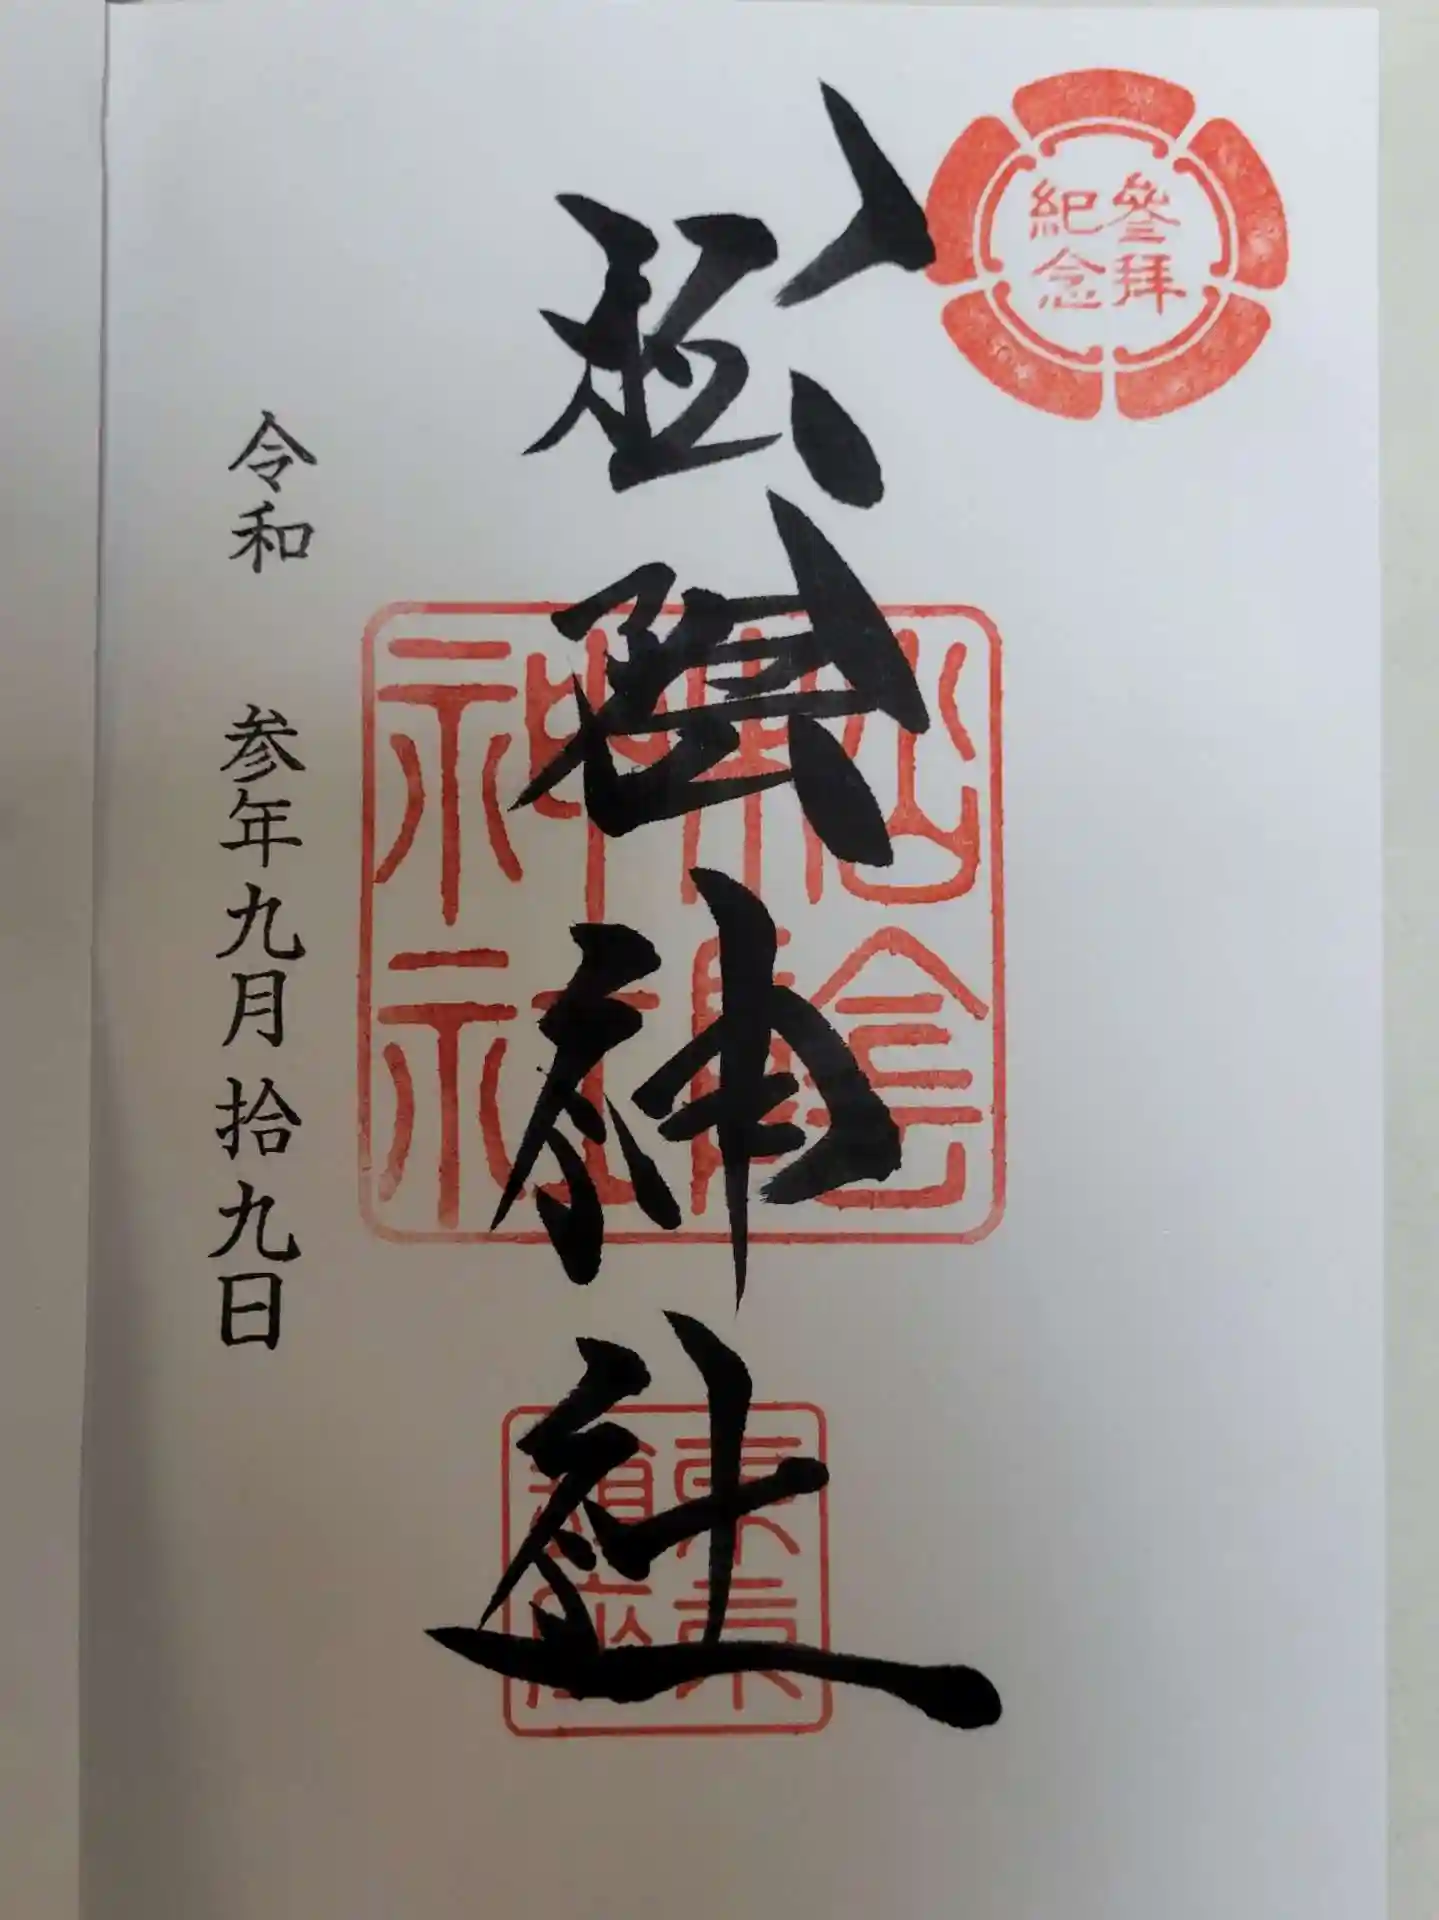 參拜
紀念
松陰神社
松陰
神社
東京
鎮座
令和 参年九月拾九日